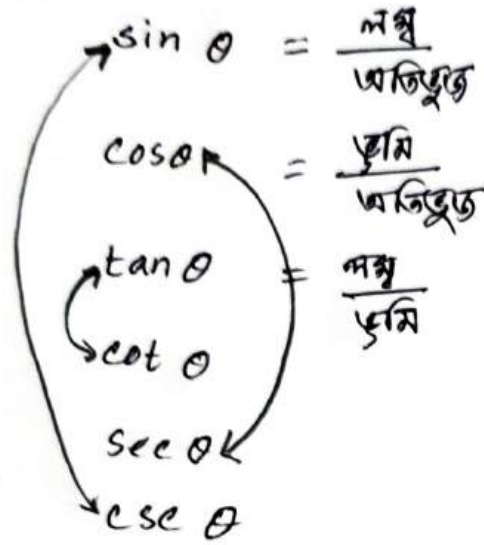 sin θ = লম্ব / অতিভুজ
cosθ = ভূমি / অতিভুজ
tan θ = লম্ব / ভূমি
cot θ
sec θ
csc θ